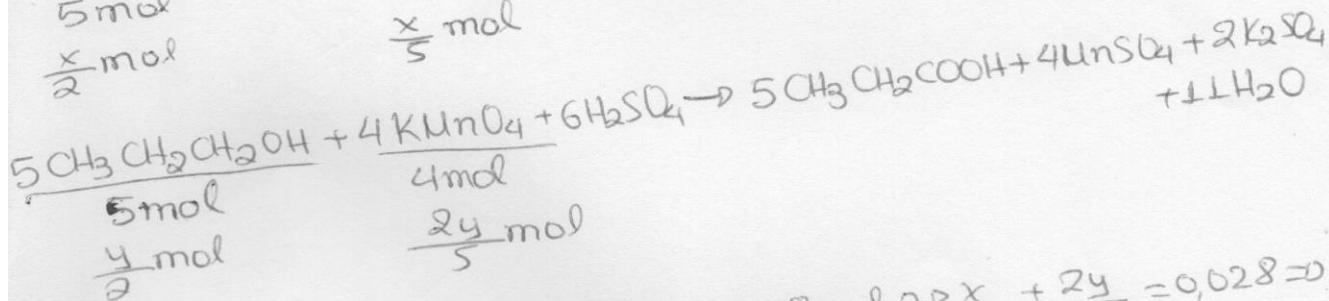 5mol
x/2 mol x/5 mol
5CH₃CH₂CH₂OH + 4KMnO₄ + 6H₂SO₄ → 5CH₃CH₂COOH + 4MnSO₄ + 2K₂SO₄
+11H₂O
5mol 4mol
y/2 mol 2y/5 mol
x + 2y = 0,028 ⇒